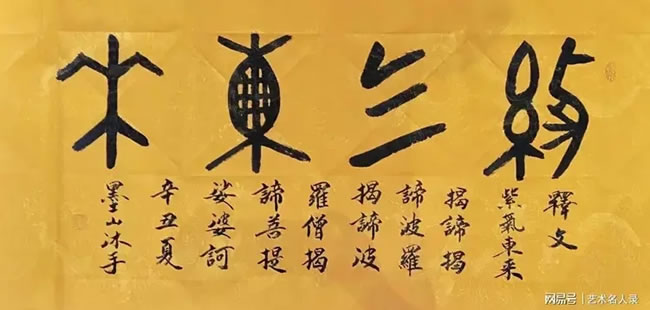 紫气東来
釋文
紫氣東来
揭諦揭
諦波羅
揭諦波
羅僧揭
諦菩提
娑婆訶
辛丑夏
墨山沐手
网易号 | 艺术名人录